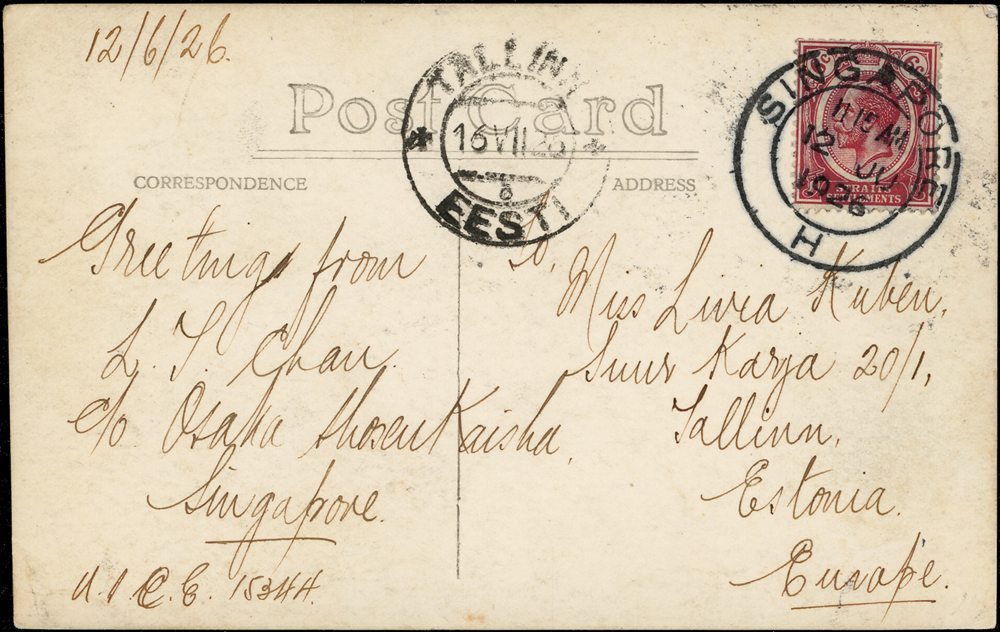 12/6/26.
Post Card
CORRESPONDENCE
ADDRESS
TALLINN
16 VII 26
EESTI
6c 6c
STRAITS
SETTLEMENTS
SINGAPORE
11 15 AM
12 JU
1926
H
Greetings from
L. T. Chan.
c/o Osaka Shosen Kaisha,
Singapore.
U.I.C.E. 15344.
To,
Miss Livia Kuben,
Suur Karja 20/1,
Tallinn,
Estonia.
Europe.